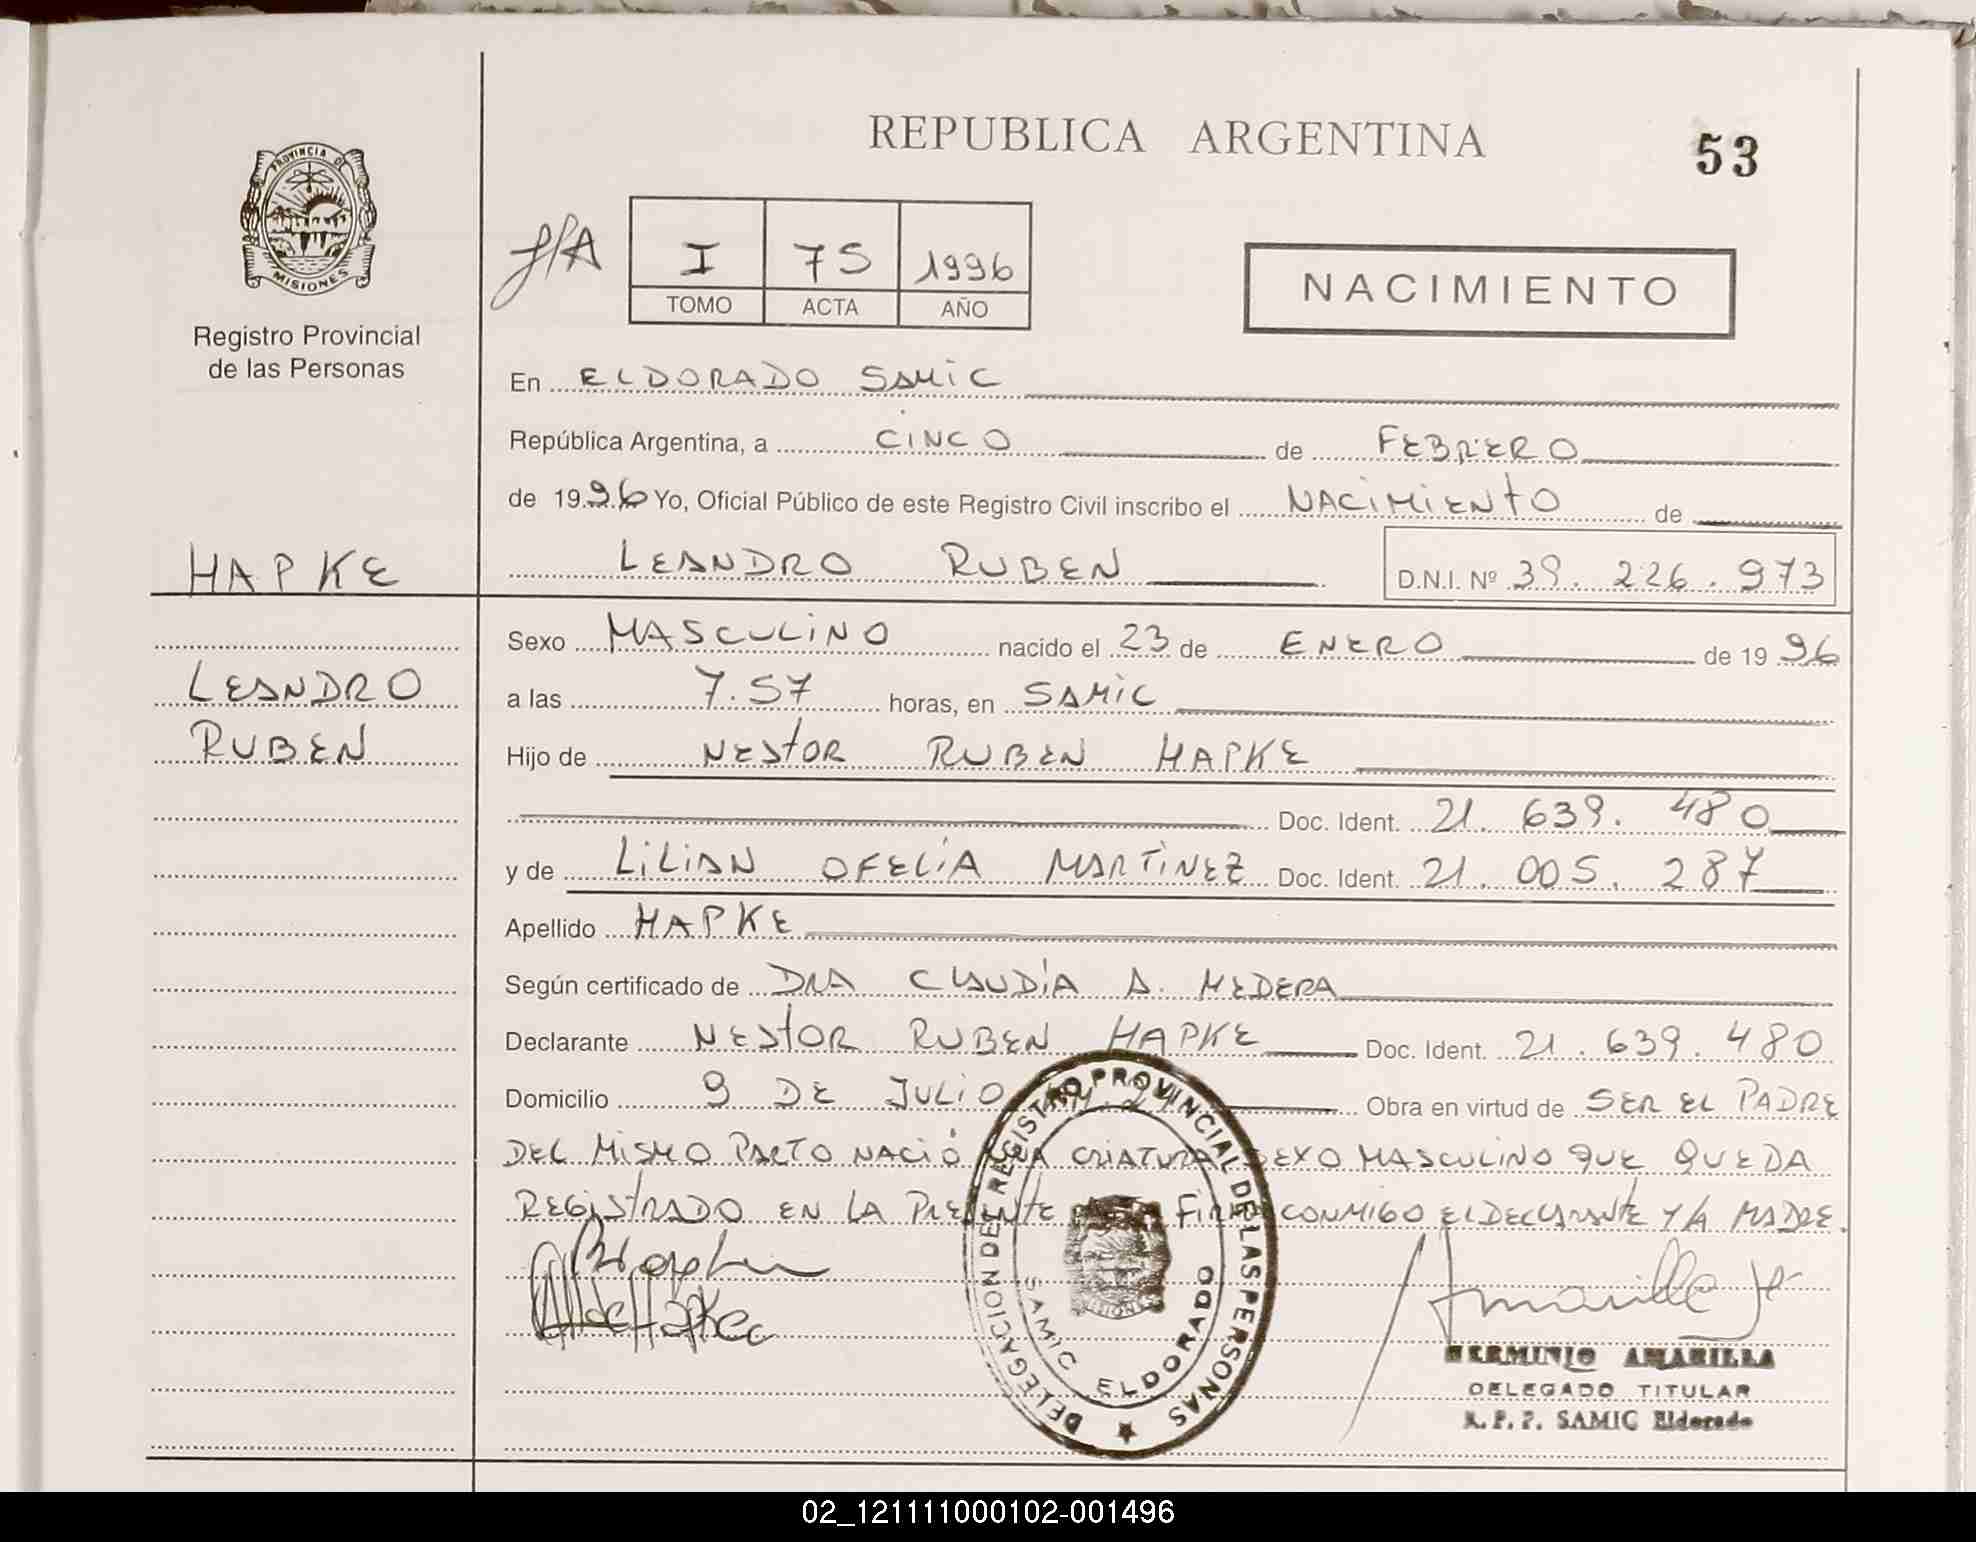 REPUBLICA ARGENTINA
53
PROVINCIA DE
MISIONES
Registro Provincial
de las Personas
I 75 1996
TOMO ACTA AÑO
NACIMIENTO
En ELDORADO SAMIC
República Argentina, a CINCO de FEBRERO
de 1996 Yo, Oficial Público de este Registro Civil inscribo el NACIMIENTO de
HAPKE
LEANDRO RUBEN D.N.I. Nº 39.226.973
Sexo MASCULINO nacido el 23 de ENERO de 1996
LEANDRO
a las 7.57 horas, en SAMIC
RUBEN
Hijo de NESTOR RUBEN HAPKE
Doc. Ident. 21.639.480
y de LILIAN OFELIA MARTINEZ Doc. Ident. 21.005.287
Apellido HAPKE
Según certificado de DRA CLAUDIA A. MEDERA
Declarante NESTOR RUBEN HAPKE Doc. Ident. 21.639.480
Domicilio 9 DE JULIO Obra en virtud de SER EL PADRE
DEL MISMO PARTO NACIÓ UNA CRIATURA SEXO MASCULINO QUE QUEDA
REGISTRADO EN LA PRESENTE FIRMA CONMIGO EL DECLARANTE Y LA MADRE.
DELEGACION DE REGISTRO PROVINCIAL DE LAS PERSONAS
SAMIC ELDORADO
MISIONES
HERMINIO AMARILLA
DELEGADO TITULAR
R.P.P. SAMIC Eldorado
02_121111000102-001496